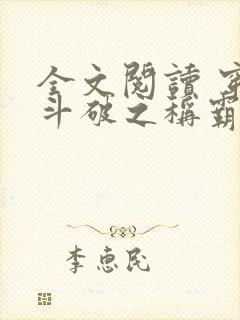 全文閱讀 穿
斗破之稱霸
李惠民